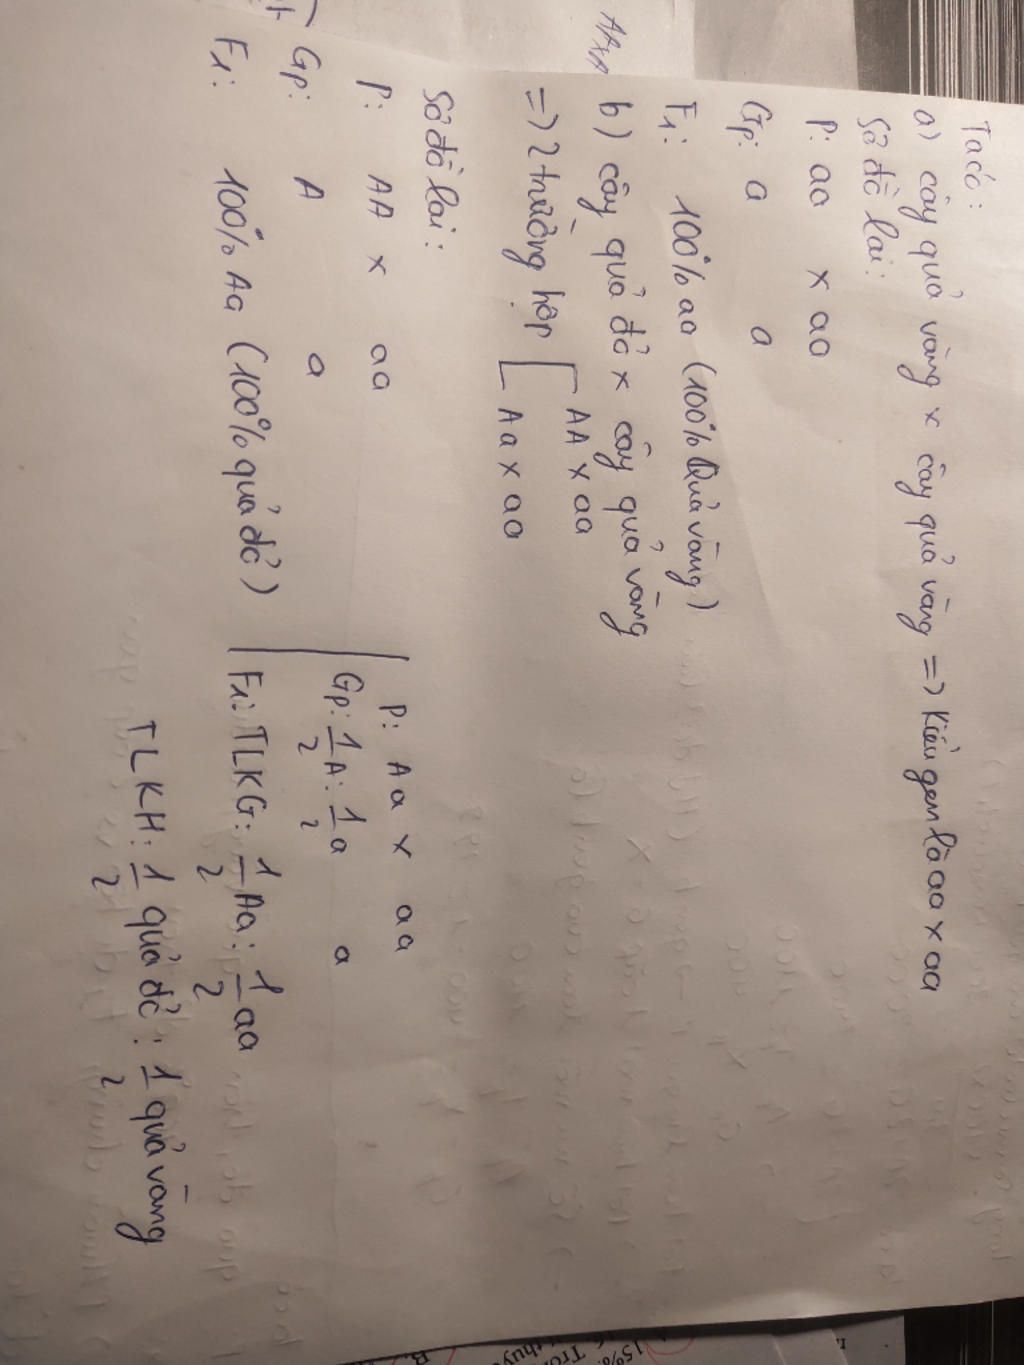 Ta có:
a) cây quả vàng x cây quả vàng => Kiểu gen là aa x aa
Sơ đồ lai:
P: aa x aa
Gp: a a
F1: 100% aa (100% Quả vàng)
b) cây quả đỏ x cây quả vàng
=> 2 trường hợp [ AA x aa
Aa x aa
Sơ đồ lai:
P: AA x aa
Gp: A a
F1: 100% Aa (100% quả đỏ)
P: Aa x aa
Gp: 1/2 A : 1/2 a a
F1: TLKG: 1/2 Aa : 1/2 aa
TLKH: 1/2 quả đỏ : 1/2 quả vàng
15%